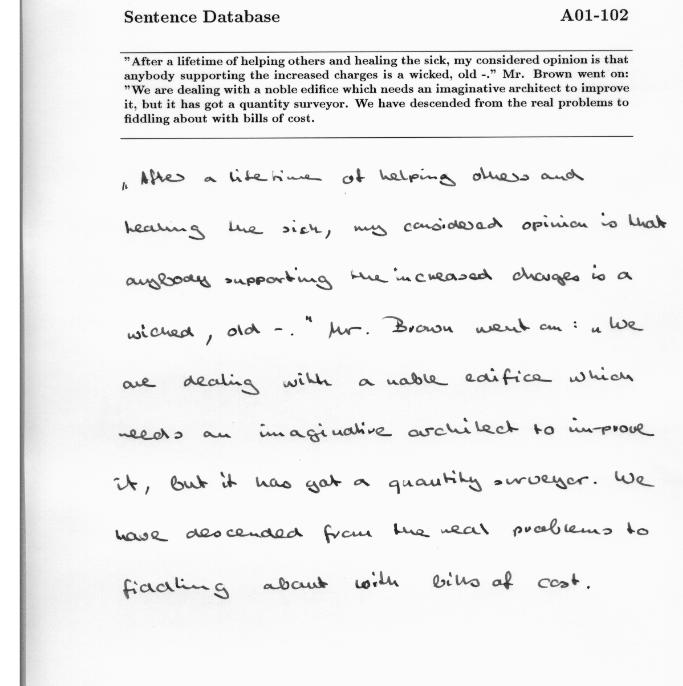 Sentence Database A01-102
"After a lifetime of helping others and healing the sick, my considered opinion is that
anybody supporting the increased charges is a wicked, old -." Mr. Brown went on:
"We are dealing with a noble edifice which needs an imaginative architect to improve
it, but it has got a quantity surveyor. We have descended from the real problems to
fiddling about with bills of cost.
„ After a lifetime of helping others and
healing the sick, my considered opinion is that
anybody supporting the increased charges is a
wicked, old -. " Mr. Brown went on : „ We
are dealing with a noble edifice which
needs an imaginative architect to improve
it, but it has got a quantity surveyor. We
have descended from the real problems to
fiddling about with bills of cost.